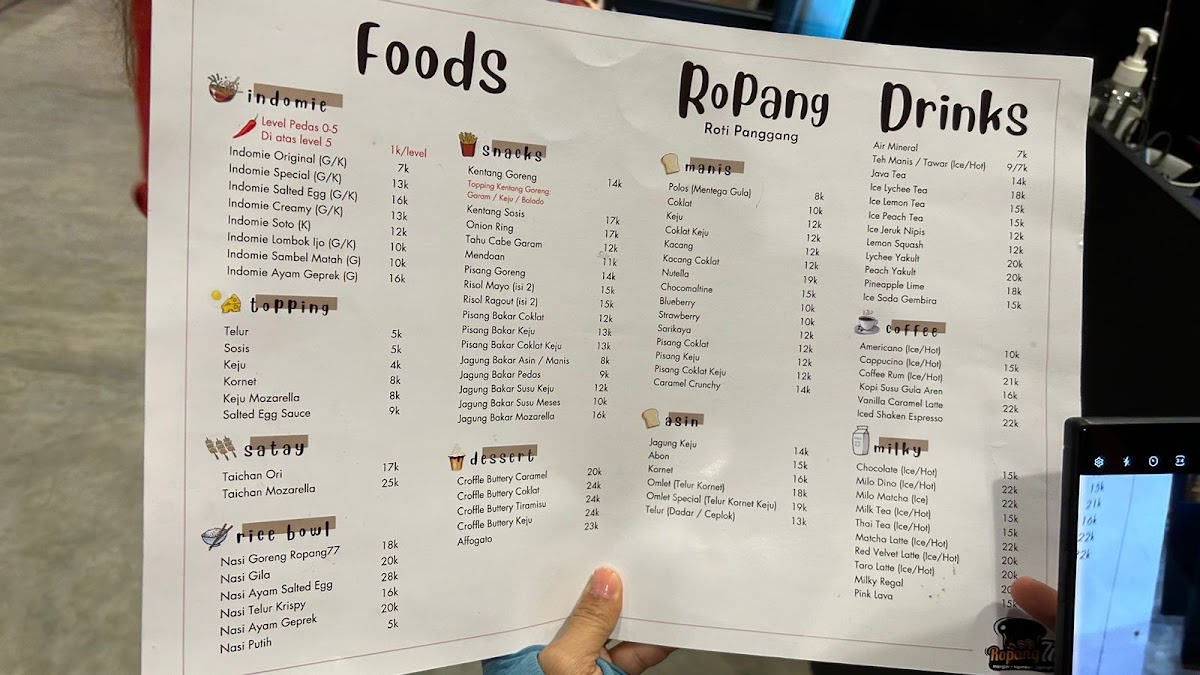 Foods
indomie
Level Pedas 0-5
Di atas level 5 1k/level
Indomie Original (G/K) 7k
Indomie Special (G/K) 13k
Indomie Salted Egg (G/K) 16k
Indomie Creamy (G/K) 13k
Indomie Soto (K) 12k
Indomie Lombok Ijo (G/K) 10k
Indomie Sambel Matah (G) 10k
Indomie Ayam Geprek (G) 16k
topping
Telur 5k
Sosis 5k
Keju 4k
Kornet 8k
Keju Mozarella 8k
Salted Egg Sauce 9k
satay
Taichan Ori 17k
Taichan Mozarella 25k
rice bowl
Nasi Goreng Ropang77 18k
Nasi Gila 20k
Nasi Ayam Salted Egg 28k
Nasi Telur Krispy 16k
Nasi Ayam Geprek 20k
Nasi Putih 5k
snacks
Kentang Goreng 14k
Topping Kentang Goreng:
Garam / Keju / Balado
Kentang Sosis 17k
Onion Ring 17k
Tahu Cabe Garam 12k
Mendoan 11k
Pisang Goreng 14k
Risol Mayo (isi 2) 15k
Risol Ragout (isi 2) 15k
Pisang Bakar Coklat 12k
Pisang Bakar Keju 13k
Pisang Bakar Coklat Keju 13k
Jagung Bakar Asin / Manis 8k
Jagung Bakar Pedas 9k
Jagung Bakar Susu Keju 12k
Jagung Bakar Susu Meses 10k
Jagung Bakar Mozarella 16k
dessert
Croffle Buttery Caramel 20k
Croffle Buttery Coklat 24k
Croffle Buttery Tiramisu 24k
Croffle Buttery Keju 24k
Affogato 23k
RoPang
Roti Panggang
manis
Polos (Mentega Gula) 8k
Coklat 10k
Keju 12k
Coklat Keju 12k
Kacang 12k
Kacang Coklat 12k
Nutella 19k
Chocomaltine 15k
Blueberry 10k
Strawberry 10k
Sarikaya 12k
Pisang Coklat 12k
Pisang Keju 12k
Pisang Coklat Keju 12k
Caramel Crunchy 14k
asin
Jagung Keju 14k
Abon 15k
Kornet 16k
Omlet (Telur Kornet) 18k
Omlet Special (Telur Kornet Keju) 19k
Telur (Dadar / Ceplok) 13k
Drinks
Air Mineral 7k
Teh Manis / Tawar (Ice/Hot) 9/7k
Java Tea 14k
Ice Lychee Tea 18k
Ice Lemon Tea 15k
Ice Peach Tea 15k
Ice Jeruk Nipis 12k
Lemon Squash 12k
Lychee Yakult 20k
Peach Yakult 20k
Pineapple Lime 18k
Ice Soda Gembira 15k
coffee
Americano (Ice/Hot) 10k
Cappucino (Ice/Hot) 15k
Coffee Rum (Ice/Hot) 21k
Kopi Susu Gula Aren 16k
Vanilla Caramel Latte 22k
Iced Shaken Espresso 22k
milky
Chocolate (Ice/Hot) 15k
Milo Dino (Ice/Hot) 22k
Milo Matcha (Ice) 22k
Milk Tea (Ice/Hot) 15k
Thai Tea (Ice/Hot) 15k
Matcha Latte (Ice/Hot) 22k
Red Velvet Latte (Ice/Hot) 20k
Taro Latte (Ice/Hot) 20k
Milky Regal
Pink Lava 15k
Ropang
15k
21k
16k
22k
22k